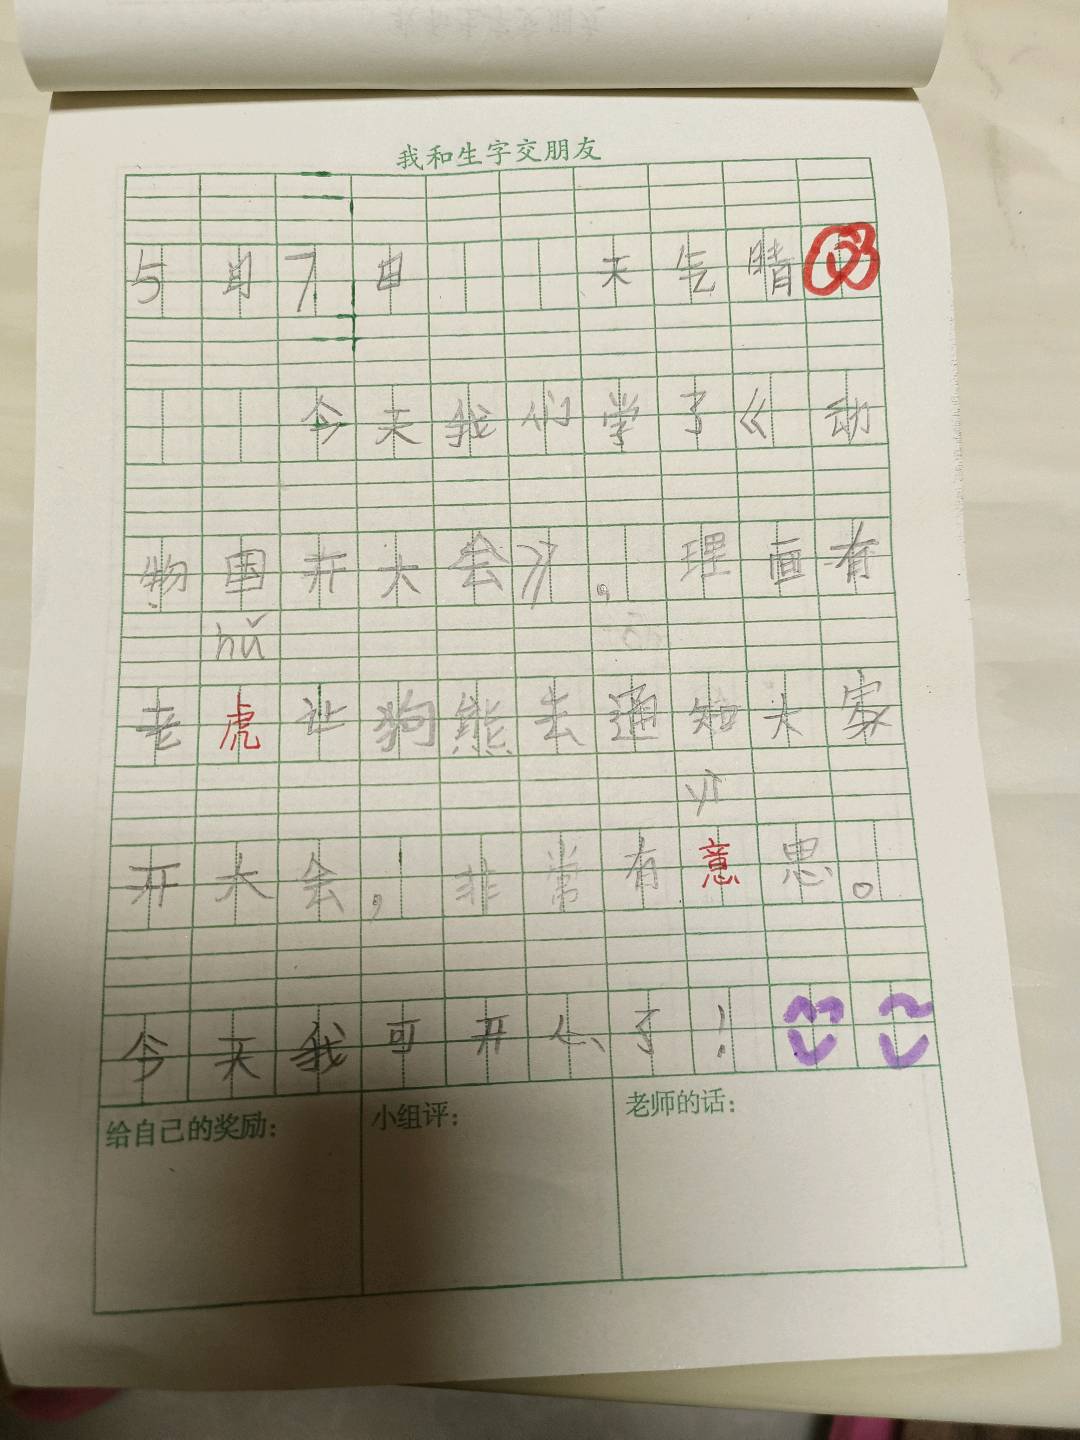 我和生字交朋友
5月7日 天气晴
今天我们学了《动
物国开大会》。理画有
hǔ
老虎让狗熊去通知大家
yì
开大会,非常有意思。
今天我可开心了!
给自己的奖励: 小组评: 老师的话: